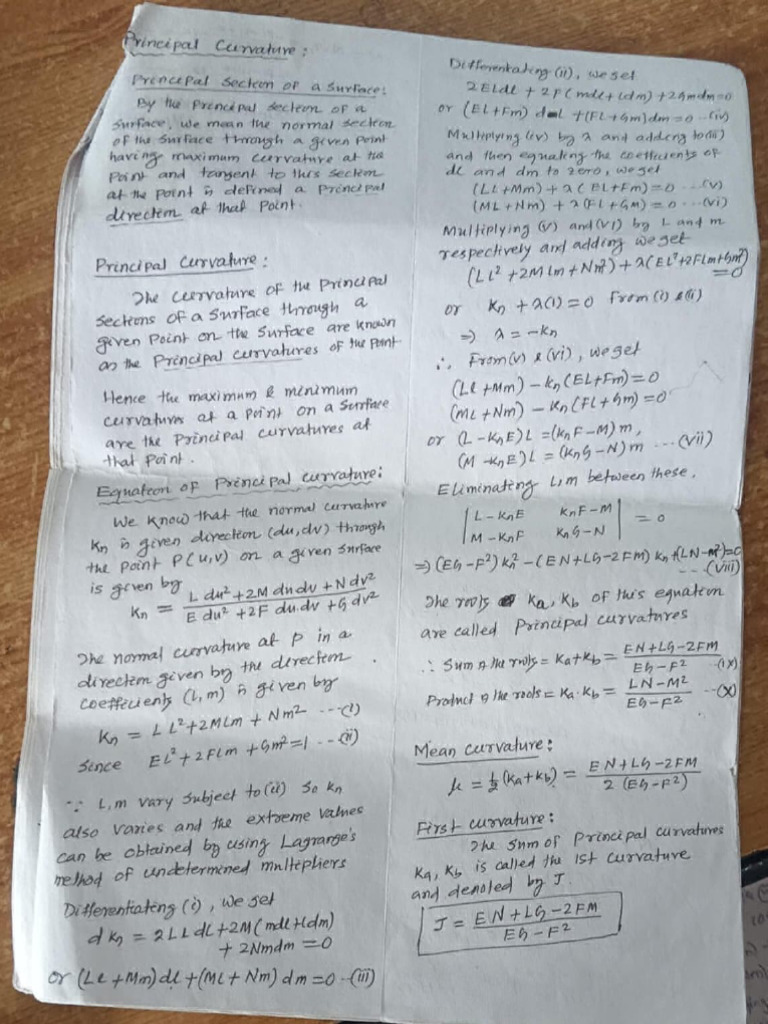 Principal Curvature:
Principal Section of a Surface:
By the Principal section of a
surface, we mean the normal section
of the surface through a given point
having maximum curvature at the
Point and tangent to this section
at the point is defined a Principal
direction at that Point.
Principal Curvature:
The curvature of the Principal
sections of a surface through a
given point on the surface are known
as the Principal curvatures of the point
Hence the maximum & minimum
curvatures at a point on a surface
are the Principal curvatures at
that point.
Equation of Principal curvature:
We know that the normal curvature
Kn is given direction (du, dv) through
the point P(u,v) on a given surface
is given by
Kn = (L du² + 2M du dv + N dv²) / (E du² + 2F du.dv + G dv²)
The normal curvature at P in a
direction given by the direction
coefficients (l, m) is given by
Kn = L l² + 2Mlm + Nm² ---(i)
Since El² + 2Flm + Gm² = 1 ---(ii)
∵ l, m vary subject to (ii) so Kn
also varies and the extreme values
can be obtained by using Lagrange's
method of undetermined multipliers
Differentiating (i), we get
dKn = 2Ll dl + 2M(mdl + ldm)
+ 2Nmdm = 0
or (Ll + Mm)dl + (Ml + Nm) dm = 0 --(iii)
Differentiating (ii), we get
2Eldl + 2F(mdl + ldm) + 2Gmdm = 0
or (El + Fm) dl + (Fl + Gm)dm = 0 --(iv)
Multiplying (iv) by λ and adding to (iii)
and then equating the coefficients of
dl and dm to zero, we get
(Ll + Mm) + λ(El + Fm) = 0 ---(v)
(Ml + Nm) + λ(Fl + Gm) = 0 ---(vi)
Multiplying (v) and (vi) by l and m
respectively and adding we get
(Ll² + 2Mlm + Nm²) + λ(El² + 2Flm + Gm²)
= 0
or Kn + λ(1) = 0 From (i) & (ii)
⇒ λ = -Kn
∴ From (v) & (vi), we get
(Ll + Mm) - Kn(El + Fm) = 0
(Ml + Nm) - Kn(Fl + Gm) = 0
or (L - KnE)l = (KnF - M)m,
(M - KnE)l = (KnG - N)m ---(vii)
Eliminating l, m between these.
| L - KnE KnF - M |
| M - KnF KnG - N | = 0
⇒ (EG - F²) Kn² - (EN + LG - 2FM) Kn + (LN - M²) = 0
---(viii)
The roots Ka, Kb of this equation
are called Principal curvatures
∴ Sum of the roots = Ka + Kb = (EN + LG - 2FM) / (EG - F²) --(ix)
Product of the roots = Ka.Kb = (LN - M²) / (EG - F²) --(x)
Mean curvature:
μ = ½(Ka + Kb) = (EN + LG - 2FM) / 2(EG - F²)
First curvature:
The sum of Principal curvatures
Ka, Kb is called the 1st curvature
and denoted by J.
J = (EN + LG - 2FM) / (EG - F²)